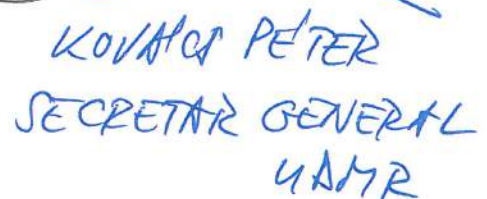 KOVÁCS PÉTER
SECRETAR GENERAL
UDMR